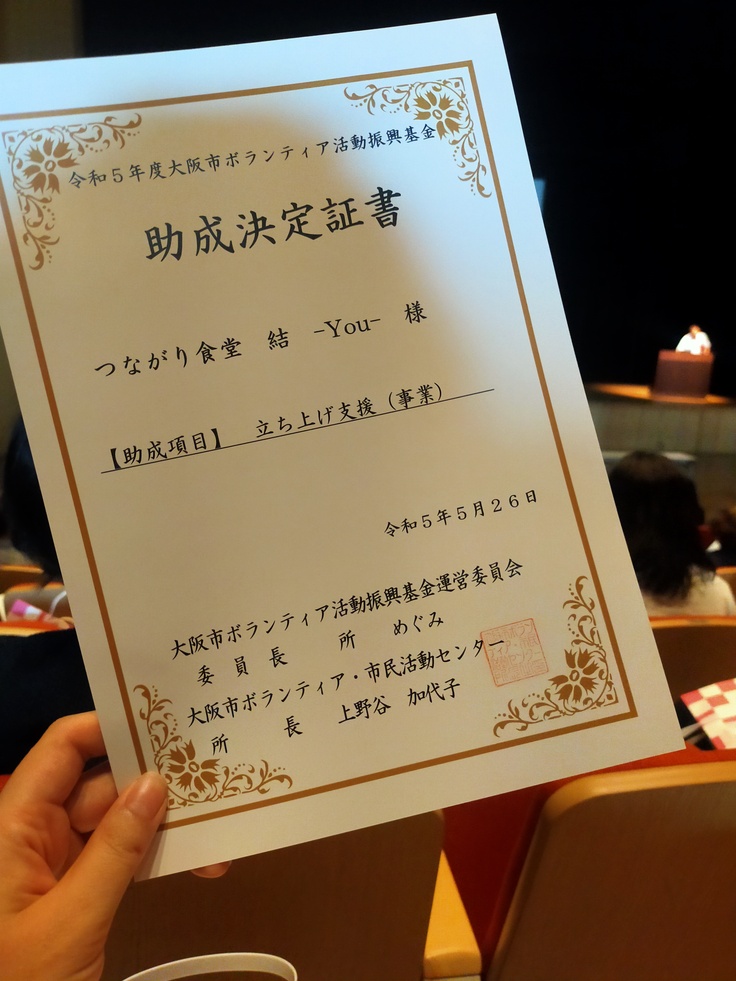 令和５年度大阪市ボランティア活動振興基金
助成決定証書
つながり食堂　結　-You-　様
【助成項目】　立ち上げ支援（事業）
令和５年５月２６日
大阪市ボランティア活動振興基金運営委員会
委員長　所　めぐみ
大阪市ボランティア・市民活動センター
所長　上野谷　加代子